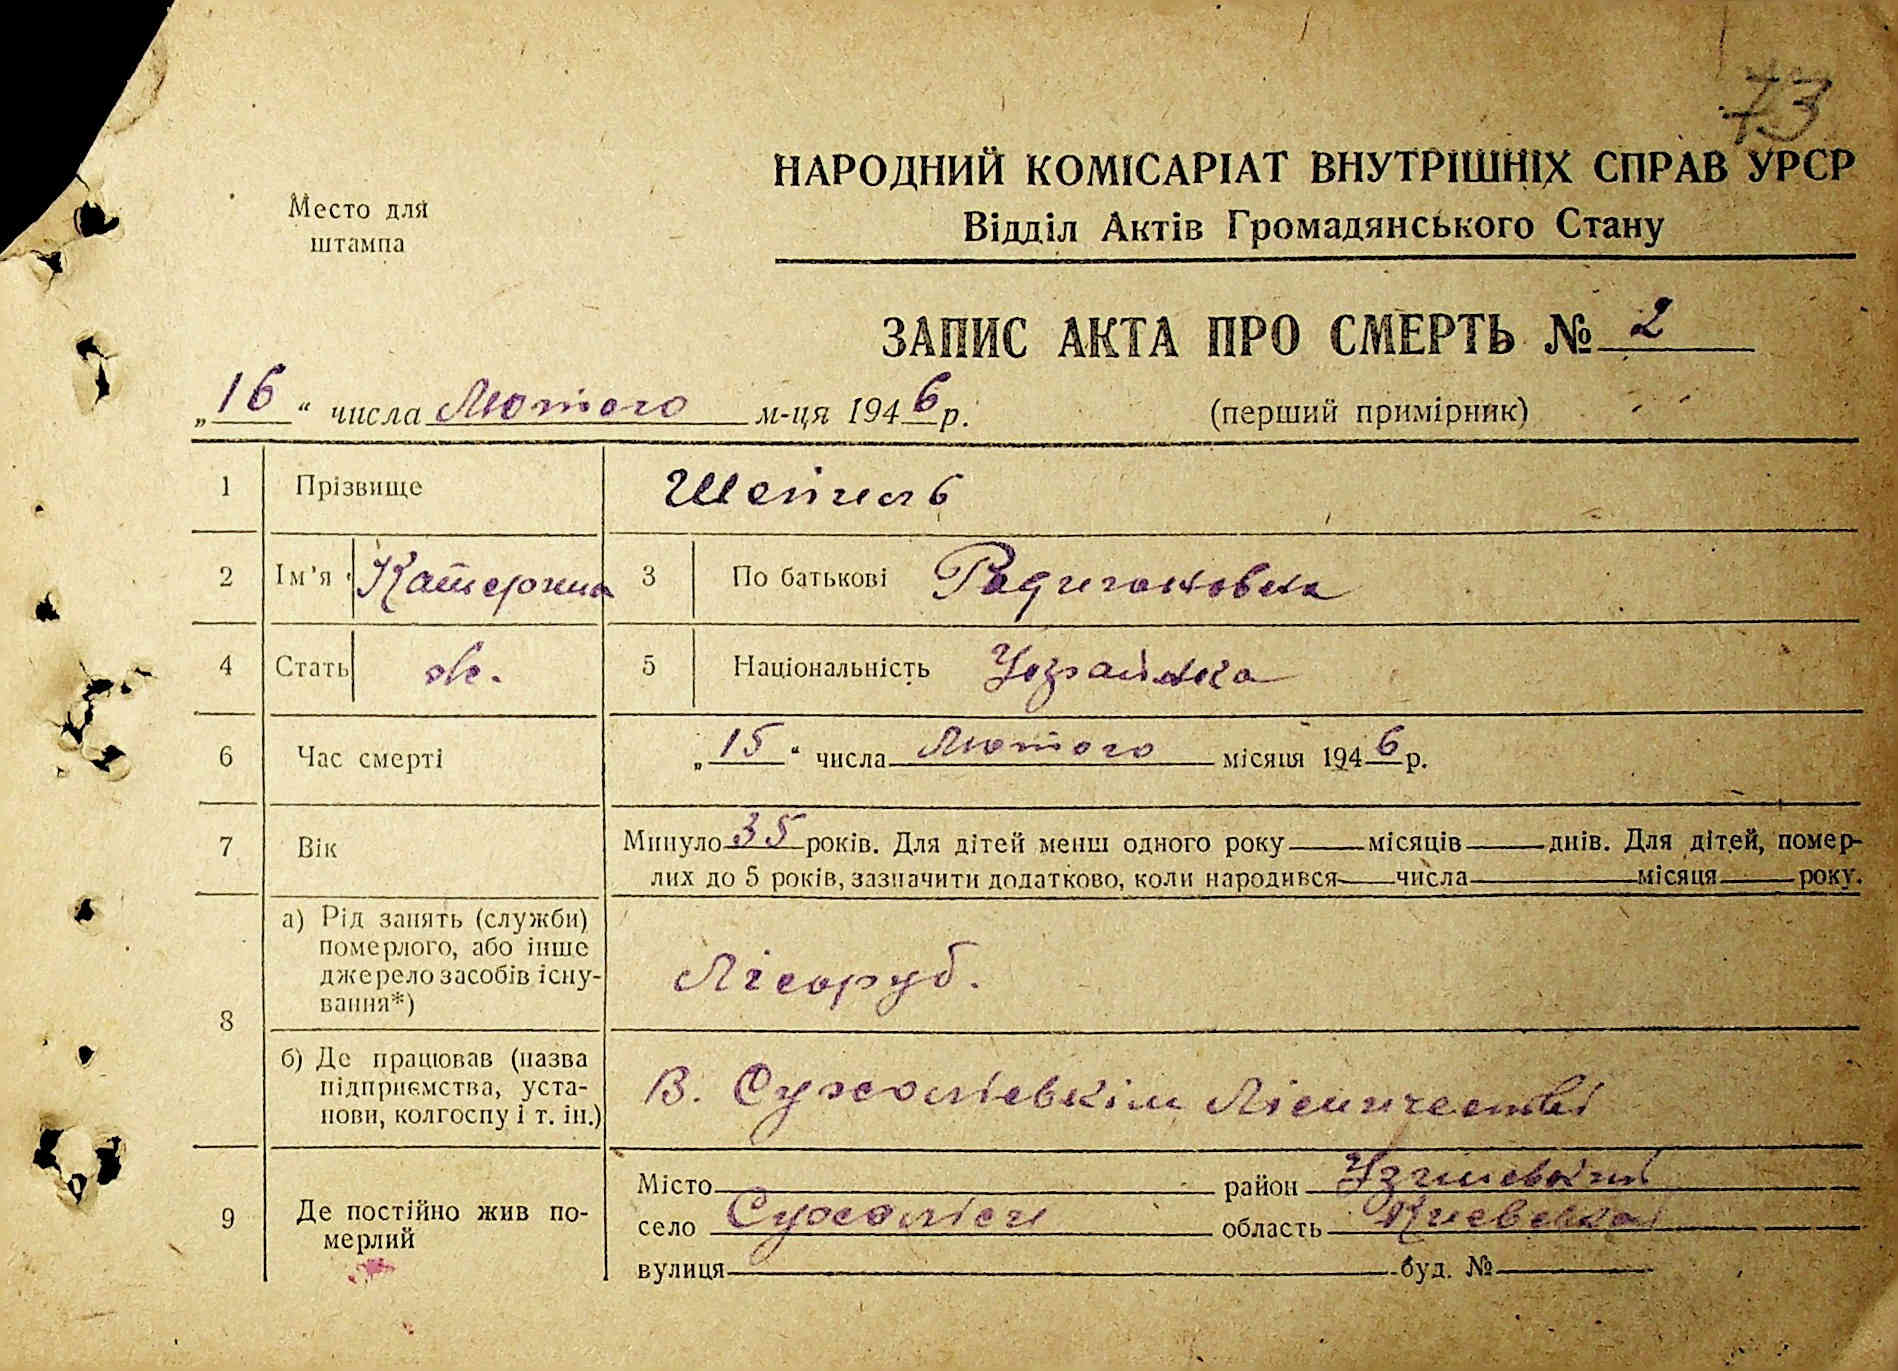 73
НАРОДНИЙ КОМІСАРІАТ ВНУТРІШНІХ СПРАВ УРСР
Место для
штампа
Відділ Актів Громадянського Стану
ЗАПИС АКТА ПРО СМЕРТЬ № 2
„16“ числа Лютого м-ця 1946 р.
(перший примірник)
1 Прізвище
2 Ім'я Катерина 3 По батькові
4 Стать ж. 5 Національність Українка
6 Час смерті „15“ числа Лютого місяця 1946 р.
7 Вік Минуло 35 років. Для дітей менш одного року місяців днів. Для дітей, помер-
лих до 5 років, зазначити додатково, коли народився числа місяця року.
8 а) Рід занять (служби)
померлого, або інше
джерело засобів існу-
вання*)
Лісоруб.
б) Де працював (назва
підприємства, уста-
нови, колгоспу і т. ін.)
В. Сухолієвкім Лісничестві
9 Де постійно жив по-
мерлий
Місто район
село Сухоліси область Киевська
вулиця буд. №